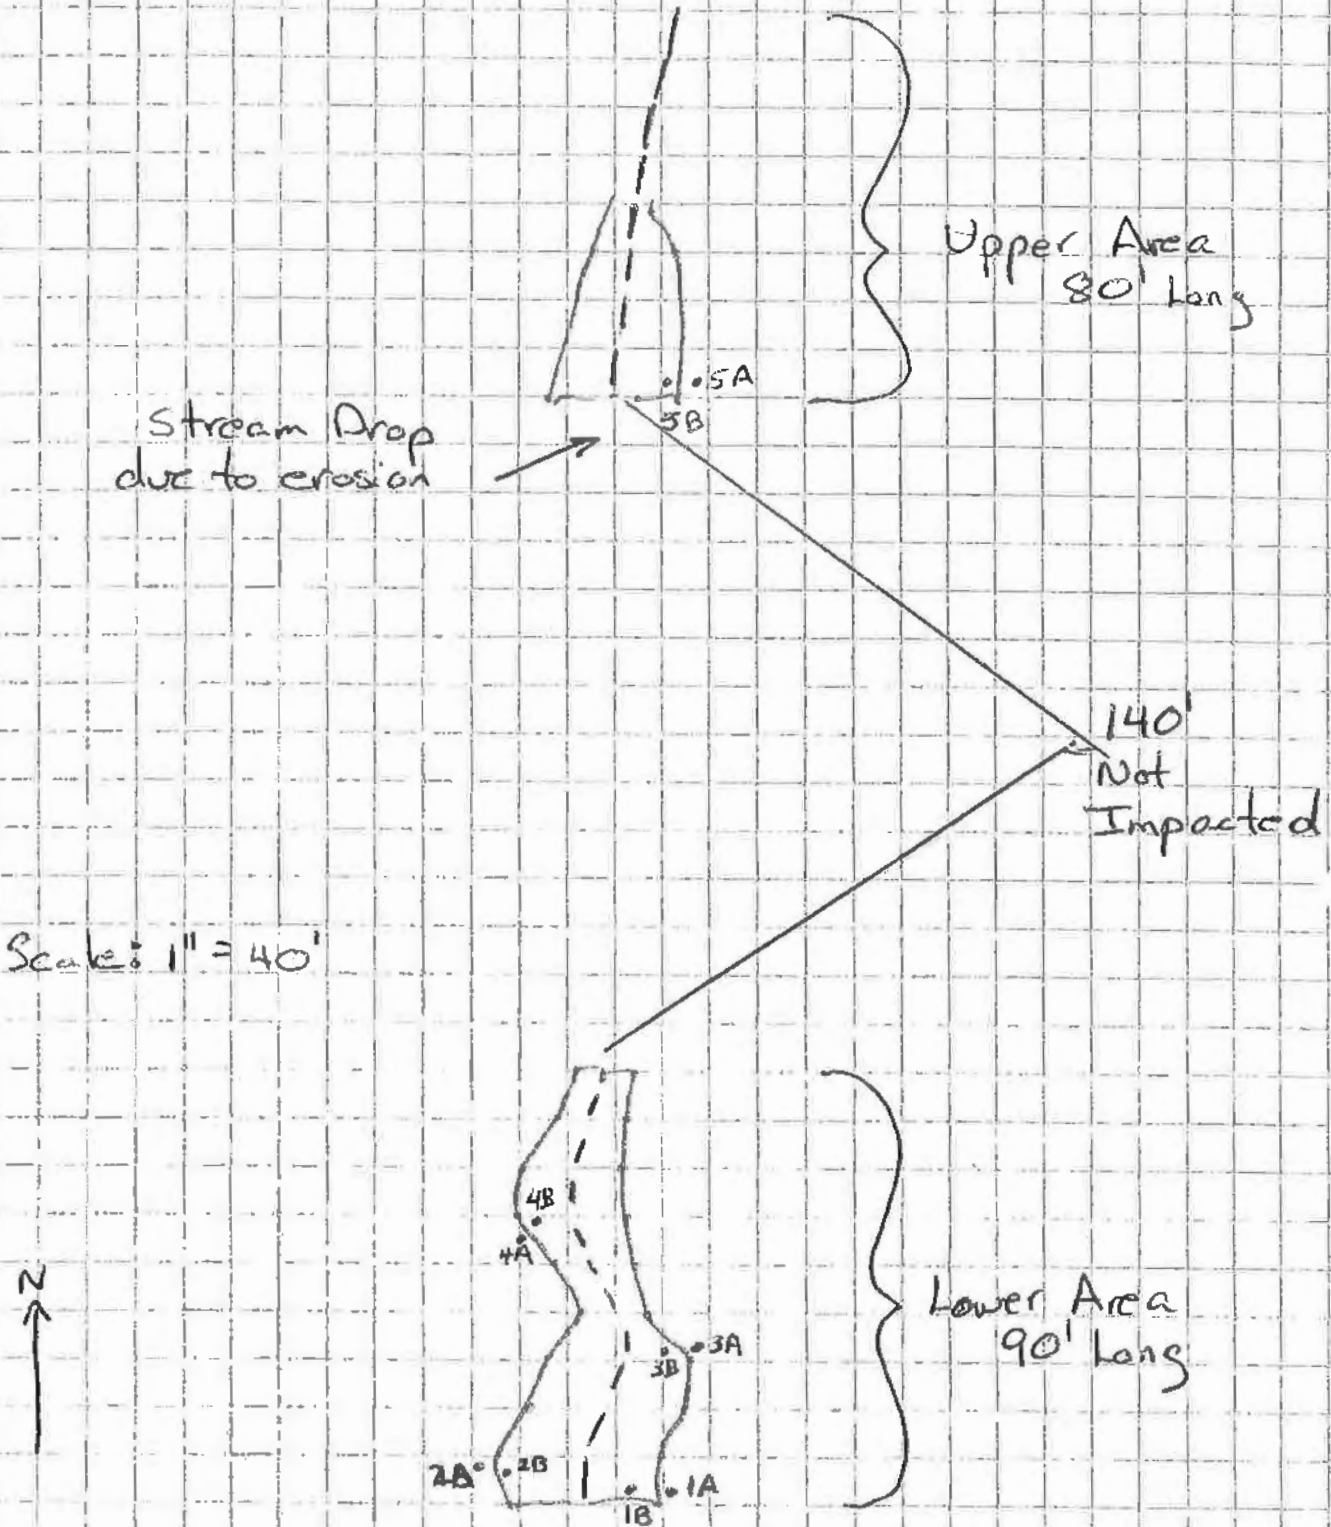 Upper Area
80' Long
5A
5B
Stream Drop
due to erosion
140'
Not
Impacted
Scale: 1" = 40'
4B
4A
N
Lower Area
90' Long
3A
3B
2A
2B
1A
1B